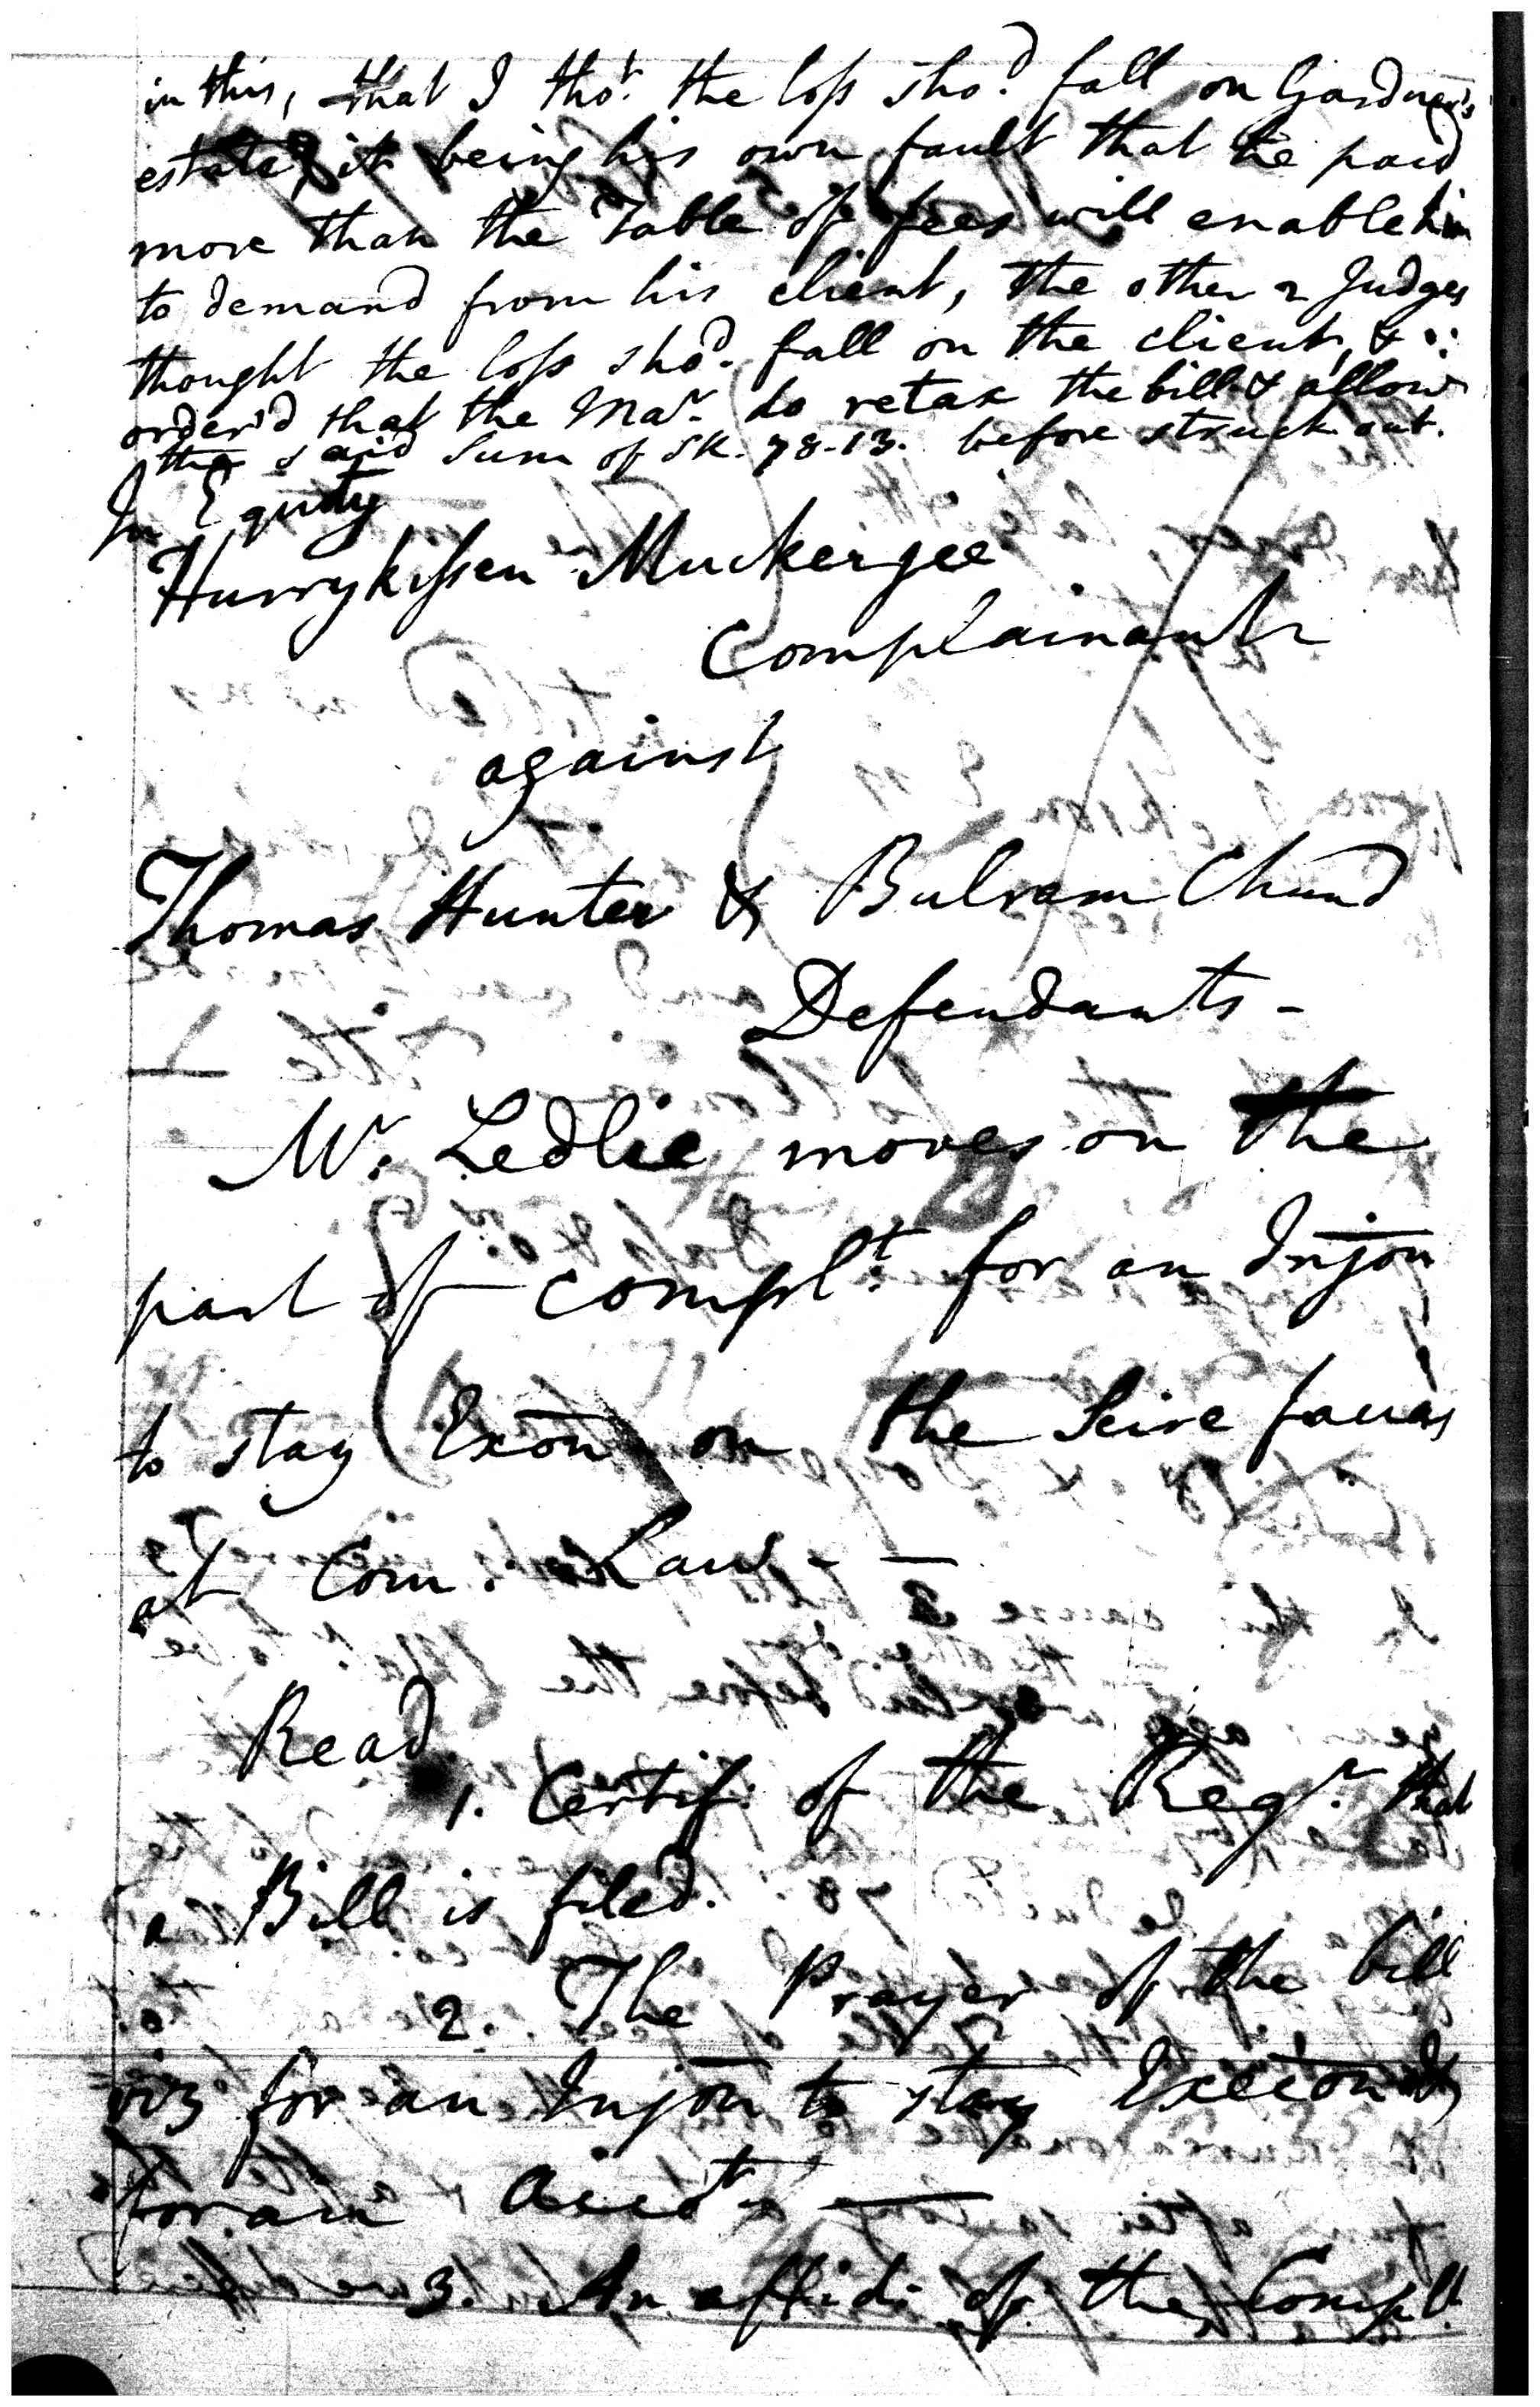 in this, that I tho.t the loss sho.d fall on Gardner's
estate, it being his own fault that he paid
more than the Table of fees will enable him
to demand from his client, The other 2 Judges
thought the loss sho.d fall on the client, &
order'd that the Mar. do retax the bill & allow
the said Sum of SR. 78-13. before struck out.
In Equity
Hurrykissen Muckerjee
Complainant
against
Thomas Hunter & Bulram Chund
Defendants -
Mr. Ledlie moves on the
part of Compl.t for an Injon
to stay Exon on the Scire facias
at Com. Law - —
Read
1. Certif. of the Regr. that
a Bill is filed.
2. The Prayer of the bill
viz for an Injon to stay Execon &
for an Acc.t —
3. An affid: of the Complt.